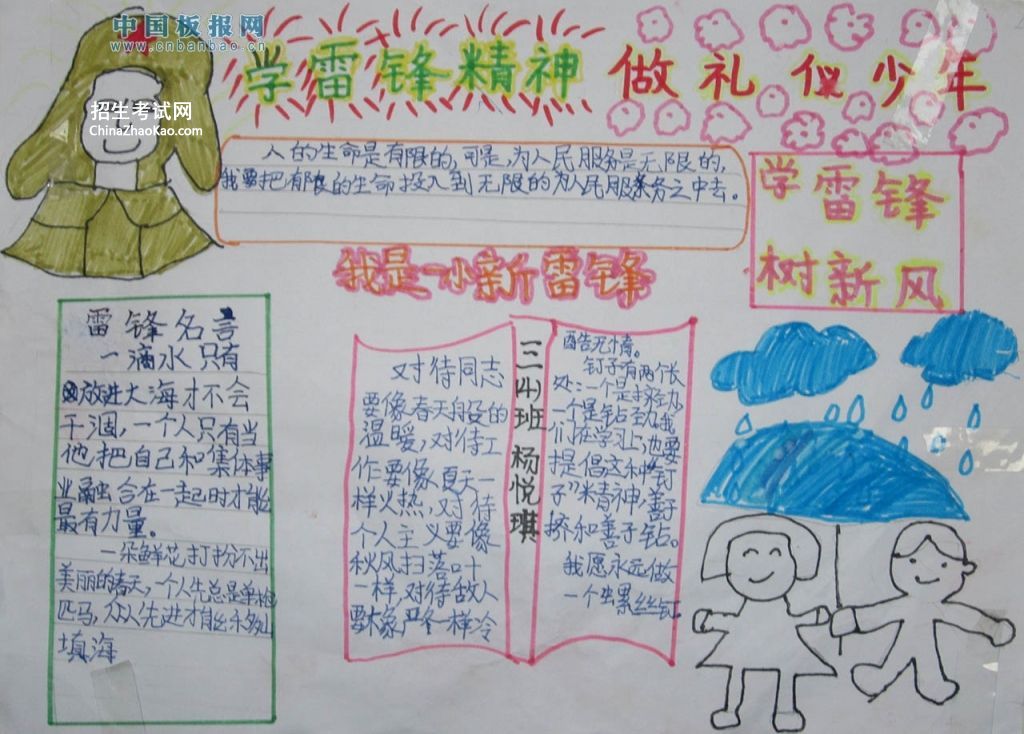 中国板报网
www.cnbanbao.cn
招生考试网
ChinaZhaoKao.com
学雷锋精神 做礼仪少年
人的生命是有限的,可是,为人民服务是无限的,
我要把有限的生命投入到无限的为人民服务之中去。
学雷锋
树新风
我是一小新雷锋
雷锋名言
一滴水只有
放进大海才不会
干涸,一个人只有当
他把自己和集体事
业融合在一起时才能
最有力量。
一朵鲜花打扮不出
美丽的春天,个人先总是单枪
匹马,众人先进才能
填海
对待同志
要像春天般的
温暖,对待工
作要像夏天一
样火热,对待
个人主义要像
秋风扫落叶
一样,对待敌人
要像严冬一样冷
三(4)班 杨悦琪
酷无情。
钉子有两个长
处:一个是挤劲,
一个是钻劲,我
们在学习上,也要
提倡这种钉
子"精神,善于
挤和善于钻。
我愿永远做
一个螺丝钉